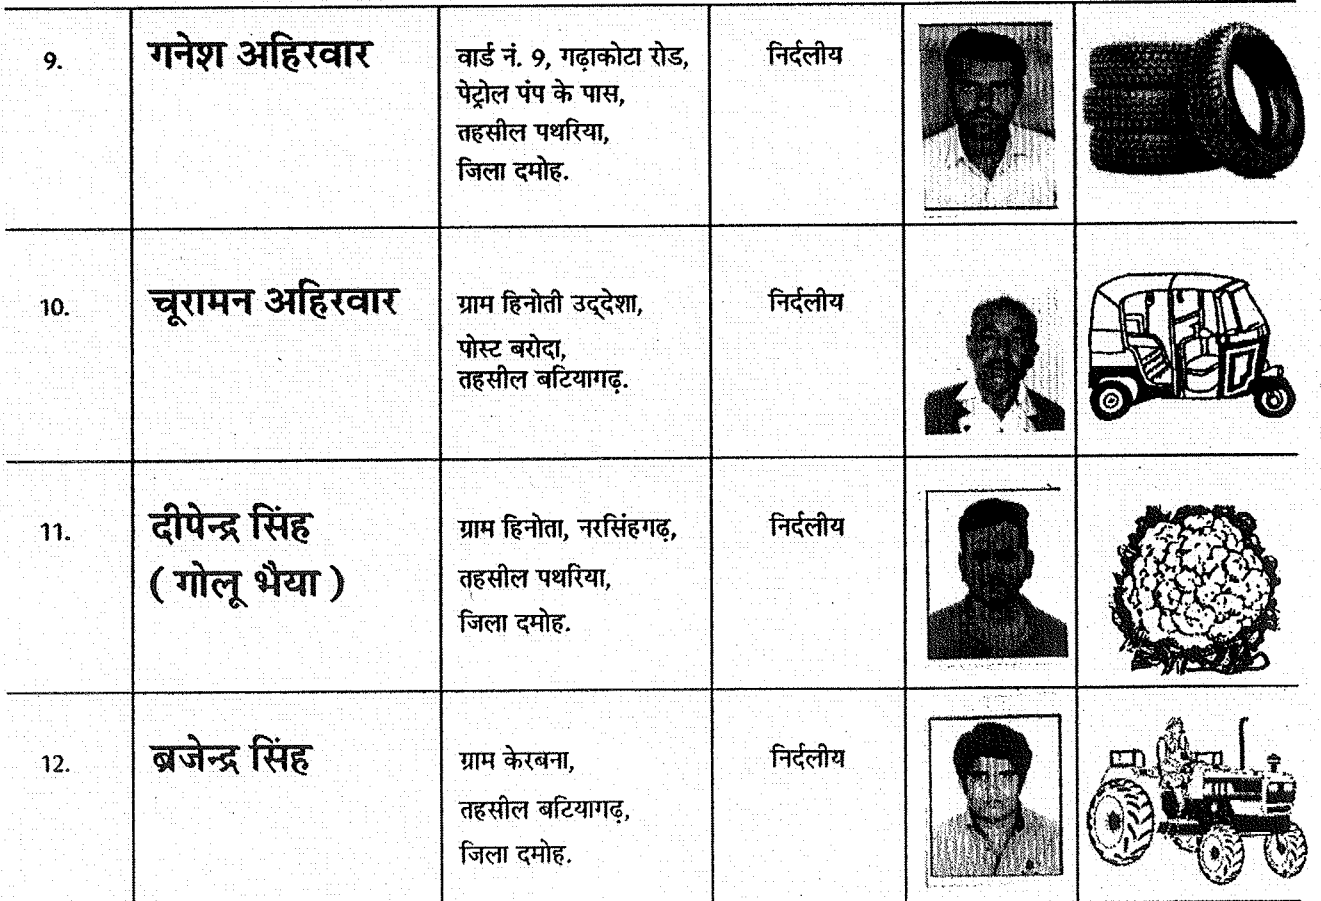 9.
गनेश अहिरवार
वार्ड नं. 9, गढ़ाकोटा रोड,
पेट्रोल पंप के पास,
तहसील पथरिया,
जिला दमोह.
निर्दलीय
10.
चूरामन अहिरवार
ग्राम हिनोती उद्देशा,
पोस्ट बरोदा,
तहसील बटियागढ़.
निर्दलीय
11.
दीपेन्द्र सिंह
( गोलू भैया )
ग्राम हिनोता, नरसिंहगढ़,
तहसील पथरिया,
जिला दमोह.
निर्दलीय
12.
ब्रजेन्द्र सिंह
ग्राम केरबना,
तहसील बटियागढ़,
जिला दमोह.
निर्दलीय